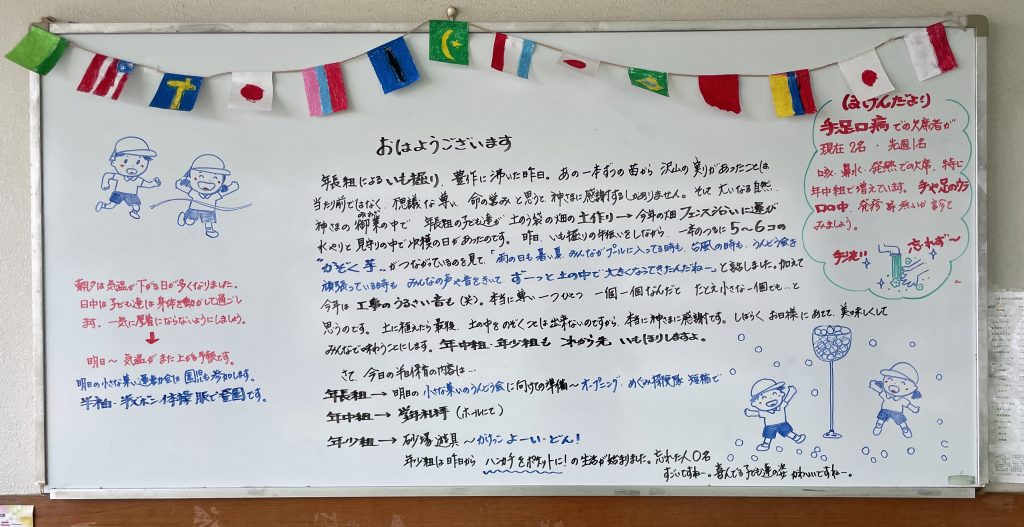 おはようございます
年長組によるいも掘り、豊作に沸いた昨日。あの一本ずつの苗から沢山の実りがあったことは
当たり前ではなく、不思議な尊い命の営みと思うと神さまに感謝するしかありません。そして大いなる自然、
神さまの御業の中で 年長組の子ども達が土のう袋の畑の土作り→今年の畑フェンス沿いに運び
みわざ
水やりと見守りの中で収穫の日があったのです。昨日、いも掘りの手伝いをしながら、一本のつるに5~6コの
"かぞく芋"がつながっているのを見て「雨の日も暑い夏みんながプールに入ってる時も、台風の時も、うんどう会を
頑張っている時も みんなの声や音をきいて ずーっと土の中で大きくなってきたんだねー」と話しました。加えて
今年は工事のうるさい音も(笑)。本当に尊い一つひとつ 一個一個なんだと たとえ小さな一個でも…と
思うのです。土に植えたら最後、土の中をのぞくことは出来ないのですから、本当に神さまに感謝です。しばらくお日様にあてて、美味しくして
みんなで味わうことにします。年中組・年少組も これから先 いもほりしますよ。
さて、今日の主な保育の内容は…
年長組→明日の小さな集いのうんどう会に向けての準備~オープニング・めぐみ探検隊 短縮で
年中組→ 礼拝(ホールにて)
年少組→砂場遊具~かけっこ よーい・どん!
年少組は昨日から ハンカチをポケットに!の生活が始まりました。忘れた人0名
すごいですねー。喜んでる子ども達の姿 かわいいですねー。
朝夕は気温が下がる日が多くなりました。
日中は子ども達は身体を動かして過ごし
ます。一気に厚着にならないようにしましょう。
明日~気温がまた上がる予報です。
明日の小さな集い運動会は園児も参加します。
半袖・半ズボン体操服で登園です。
(ほけんだより)
手足口病での欠席者が
現在2名・先週1名
咳・鼻水・発熱での欠席、特に
年中組で増えています。手や足のうら
口の中、発疹等無いか診て
みましょう。
手洗い
忘れず~